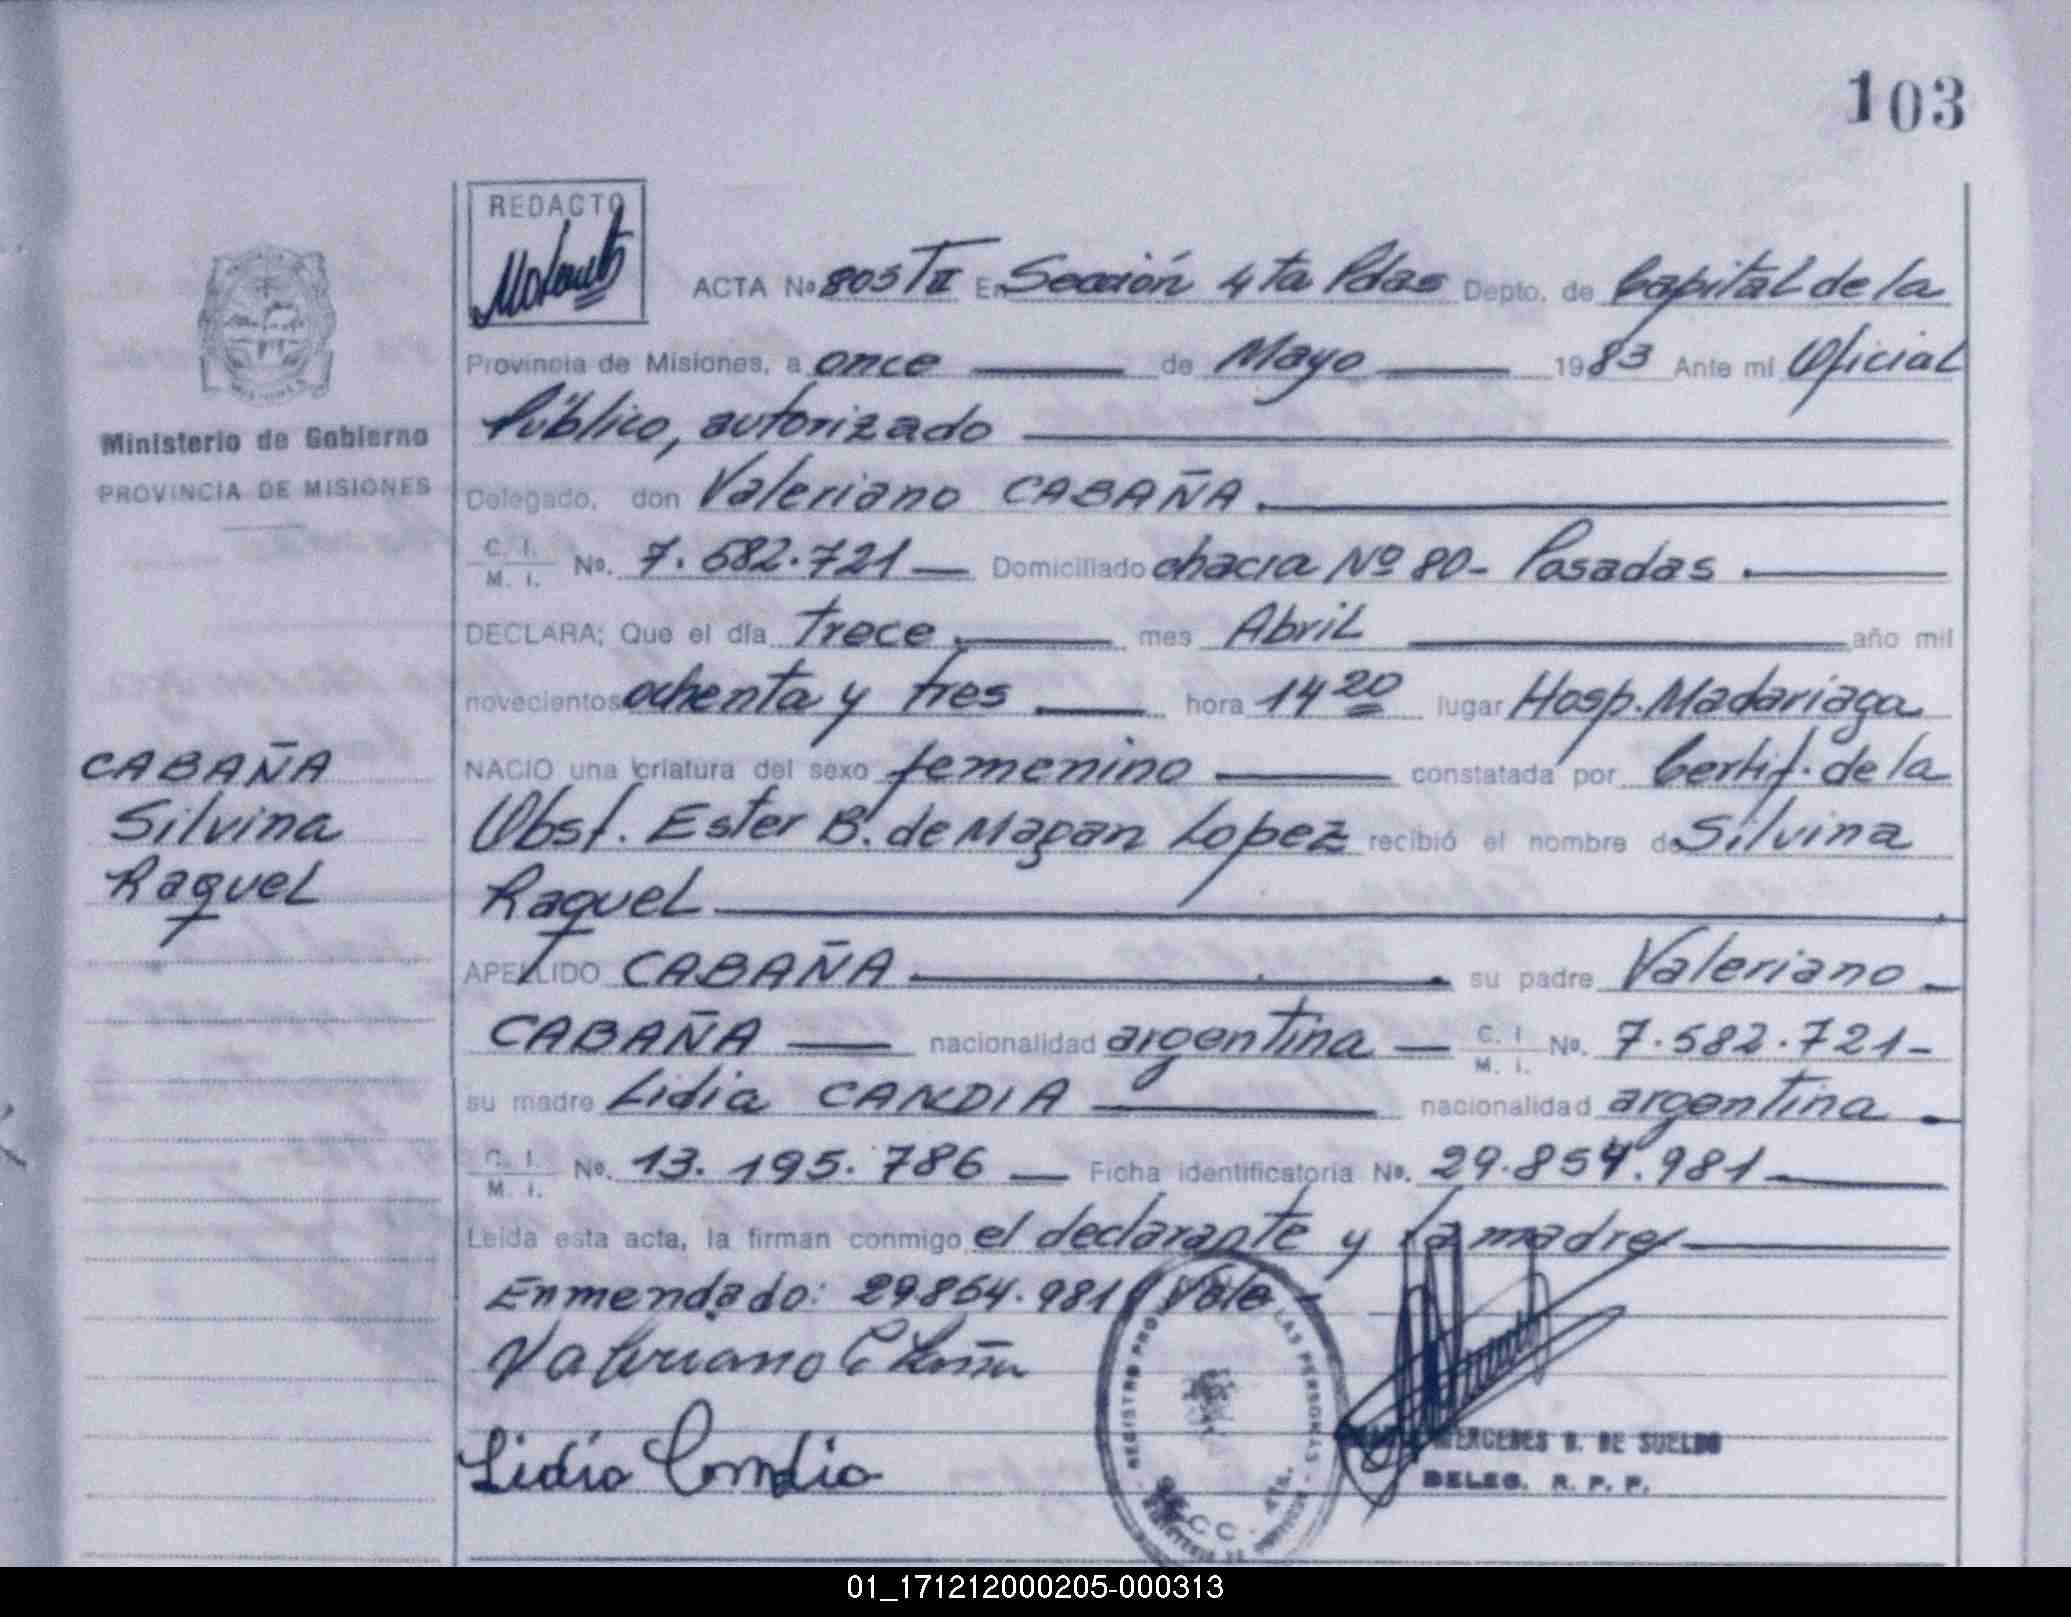 103
REDACTO
ACTA No 803 TII En Sección 4ta Pdas Depto. de Capital de la
Provincia de Misiones, a once de Mayo 1983 Ante mi Oficial
Público, autorizado
Ministerio de Gobierno
PROVINCIA DE MISIONES
Delegado, don Valeriano CABAÑA.
C. I. M. I. No. 7.582.721 — Domiciliado chacra Nº 80- Posadas.
DECLARA; Que el día Trece. mes Abril año mil
novecientos ochenta y tres hora 14 20 lugar Hosp. Madariaga
CABAÑA
Silvina
Raquel
NACIO una criatura del sexo femenino constatada por Certif. de la
Obst. Ester B. de Magan Lopez recibió el nombre de Silvina
Raquel.
APELLIDO CABAÑA su padre Valeriano
CABAÑA — nacionalidad argentina — C. I. M. I. No. 7.582.721-
su madre Lidia CANDIA nacionalidad argentina.
C. I. M. I. No. 13.195.786 — Ficha identificatoria No. 29.854.981
Leída esta acta, la firman conmigo el declarante y la madre
Enmendado: 29854.981 Vale-
Valeriano Cabaña
Lidia Candia
REGISTRO PRO LAS PERSONAS
MERCEDES B. DE SUELDO
DELEG. R. P. P.
01_171212000205-000313